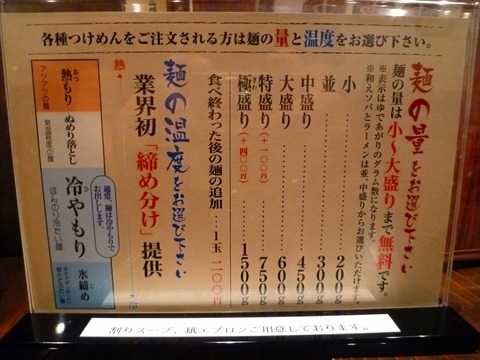 各種つけめんをご注文される方は麺の量と温度をお選び下さい。
麺の量をお選び下さい
麺の量は小〜大盛りまで無料です。
※表示はゆであがりのグラム数になります。
※和えソバとラーメンは並、中盛りからお選びいただけます。
小 200g
並 300g
中盛り 450g
大盛り 600g
特盛り(+100円) 750g
極盛り(+400円) 1500g
食べ終わった後の麺の追加 1玉 200円
麺の温度をお選び下さい
業界初「締め分け」提供
熱
冷
熱もり
アツアツの麺
ぬめり落とし
常温程度の麺
冷やもり
ほんのり冷たい麺
通常、麺は冷やもりでお出しします。
氷締め
割りスープ、紙エプロンご用意しております。